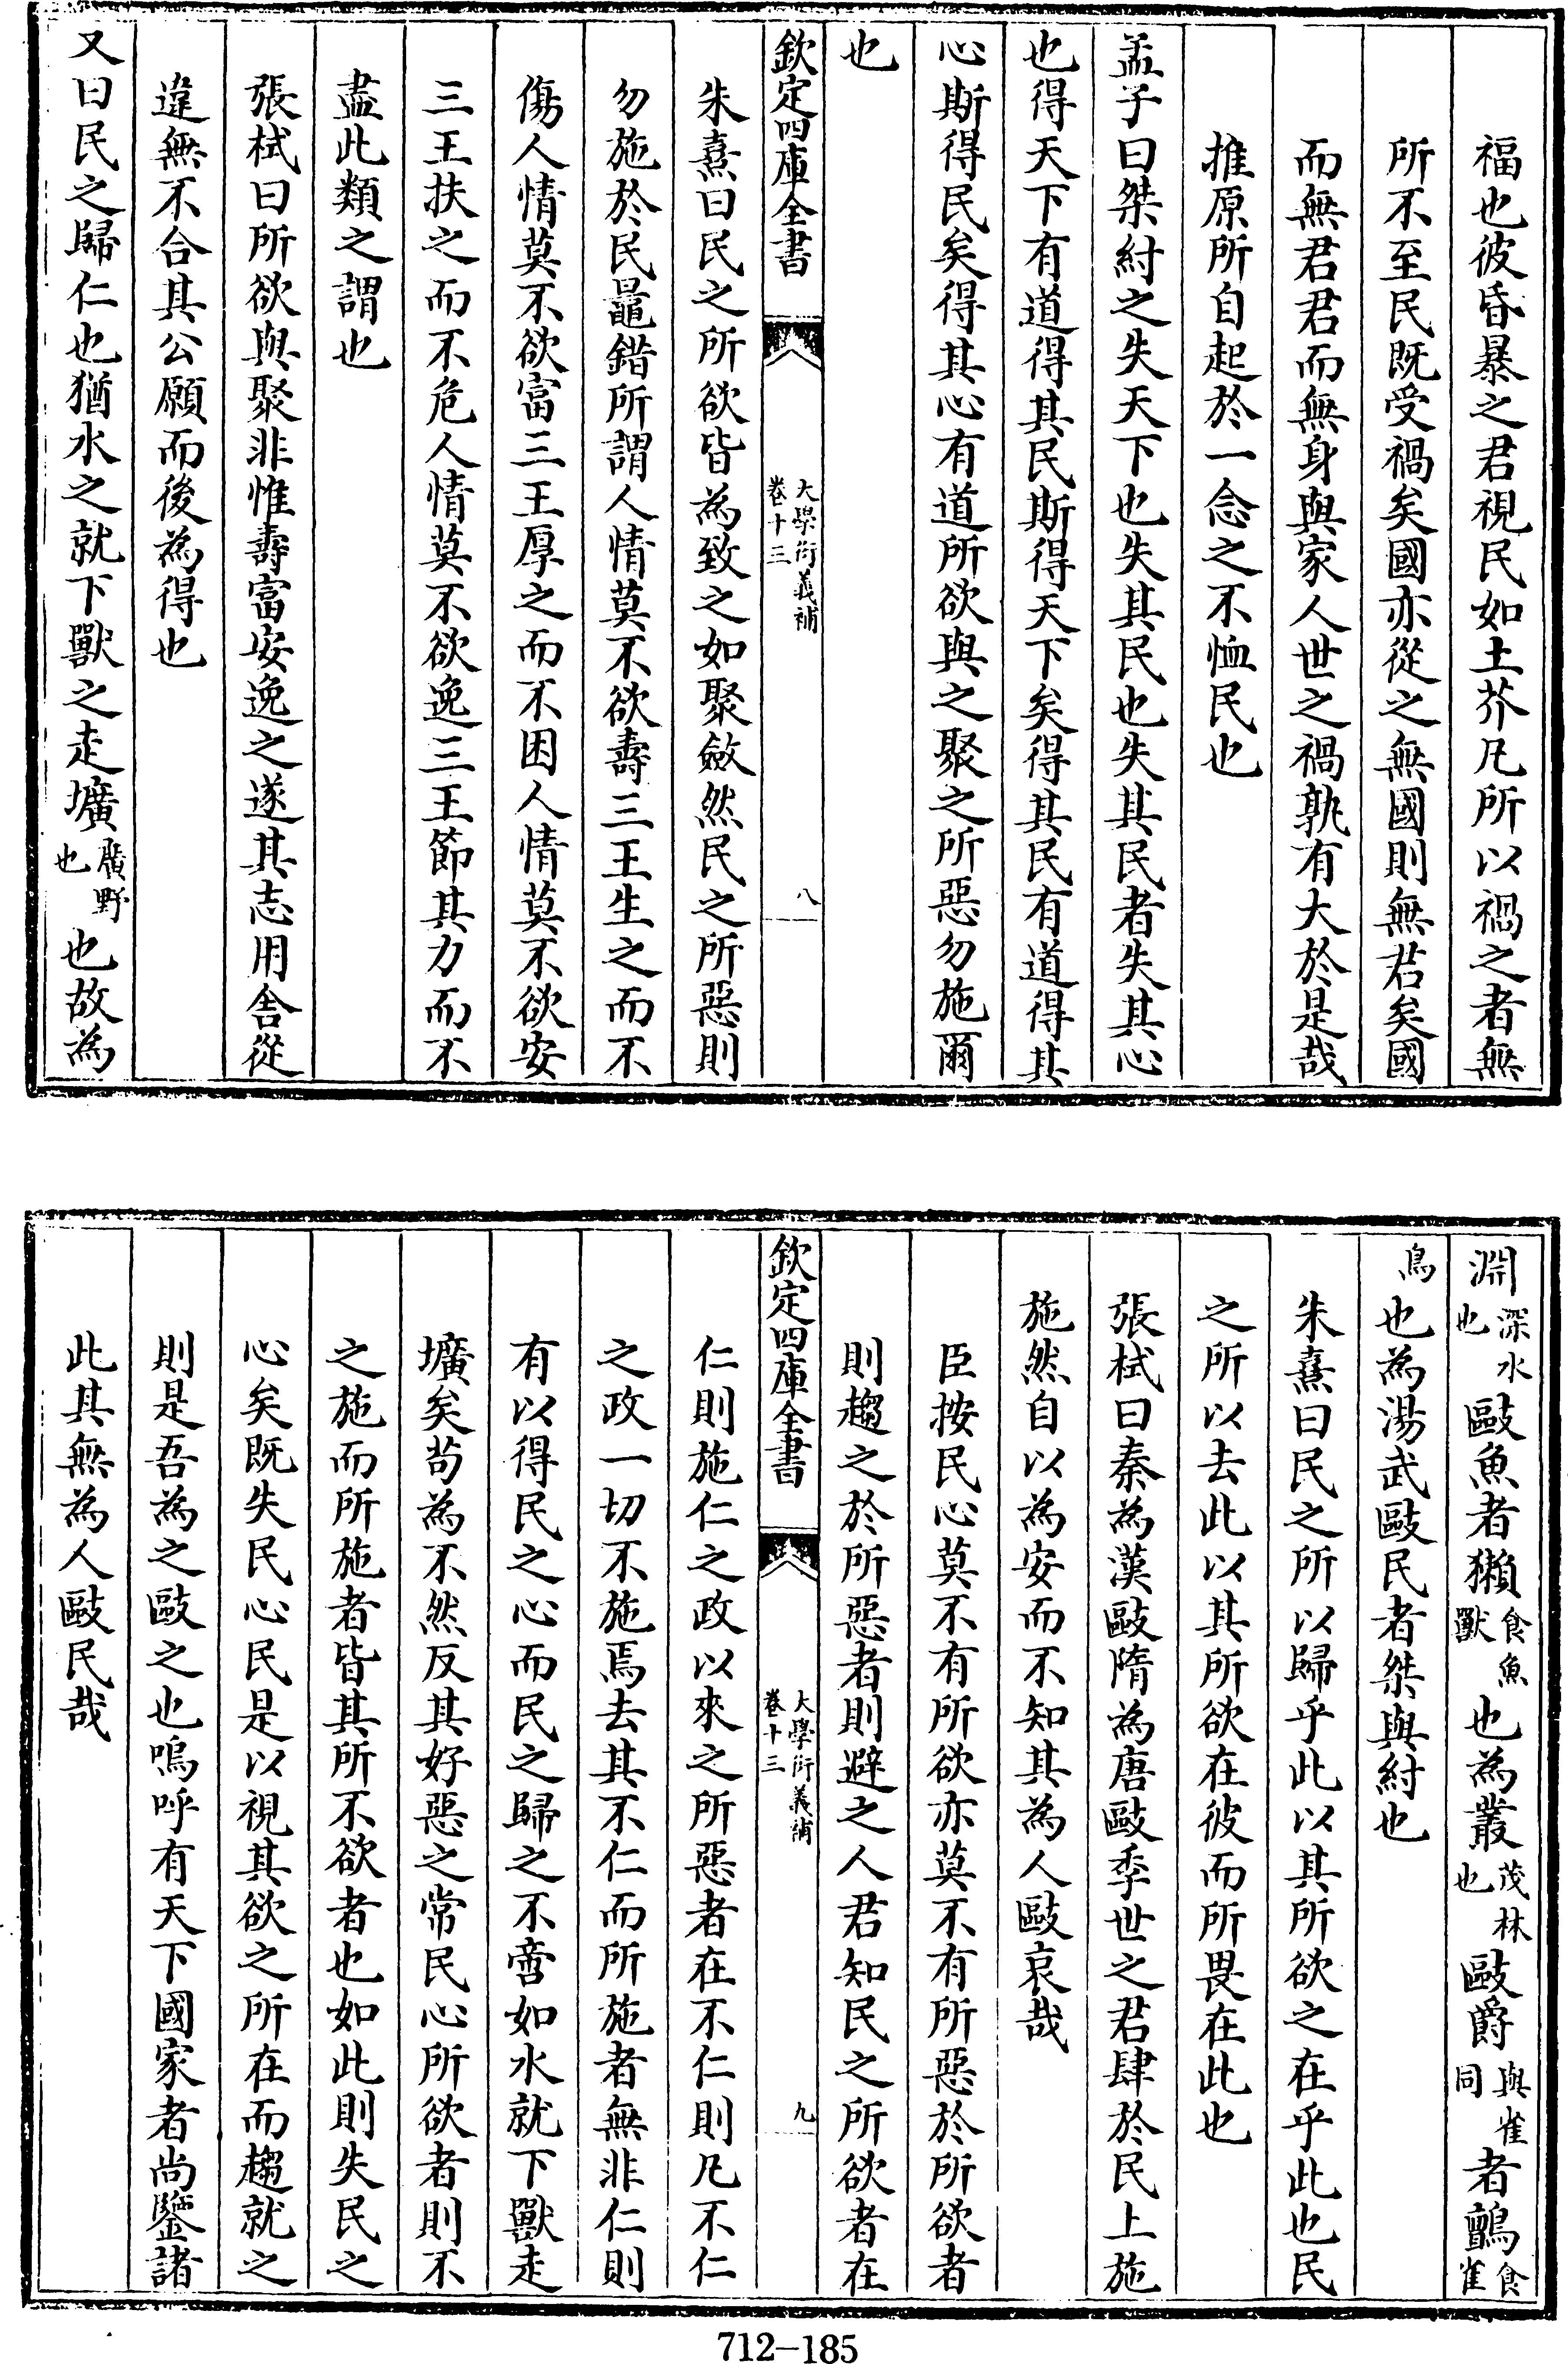 福也彼昏暴之君視民如土芥凡所以禍之者無
所不至民既受禍矣國亦從之無國則無君矣國
而無君君而無身與家人世之禍孰有大於是哉
推原所自起於一念之不恤民也
孟子曰桀紂之失天下也失其民也失其民者失其心
也得天下有道得其民斯得天下矣得其民有道得其
心斯得民矣得其心有道所欲與之聚之所惡勿施爾
也
欽定四庫全書
大學衍義補
卷十三
八
朱熹曰民之所欲皆為致之如聚斂然民之所惡則
勿施於民鼂錯所謂人情莫不欲壽三王生之而不
傷人情莫不欲富三王厚之而不困人情莫不欲安
三王扶之而不危人情莫不欲逸三王節其力而不
盡此類之謂也
張栻曰所欲與聚非惟壽富安逸之遂其志用舍從
違無不合其公願而後為得也
又曰民之歸仁也猶水之就下獸之走壙廣野也也故為
淵深水也敺魚者獺食魚獸也為叢茂林也敺爵與雀同者鸇食雀
鳥也為湯武敺民者桀與紂也
朱熹曰民之所以歸乎此以其所欲之在乎此也民
之所以去此以其所欲在彼而所畏在此也
張栻曰秦為漢敺隋為唐敺季世之君肆於民上施
施然自以為安而不知其為人敺哀哉
臣按民心莫不有所欲亦莫不有所惡於所欲者
則趨之於所惡者則避之人君知民之所欲者在
欽定四庫全書
大學衍義補
卷十三
九
仁則施仁之政以來之所惡者在不仁則凡不仁
之政一切不施焉去其不仁而所施者無非仁則
有以得民之心而民之歸之不啻如水就下獸走
壙矣茍為不然反其好惡之常民心所欲者則不
之施而所施者皆其所不欲者也如此則失民之
心矣既失民心民是以視其欲之所在而趨就之
則是吾為之敺之也嗚呼有天下國家者尚鑒諸
此其無為人敺民哉
712-185